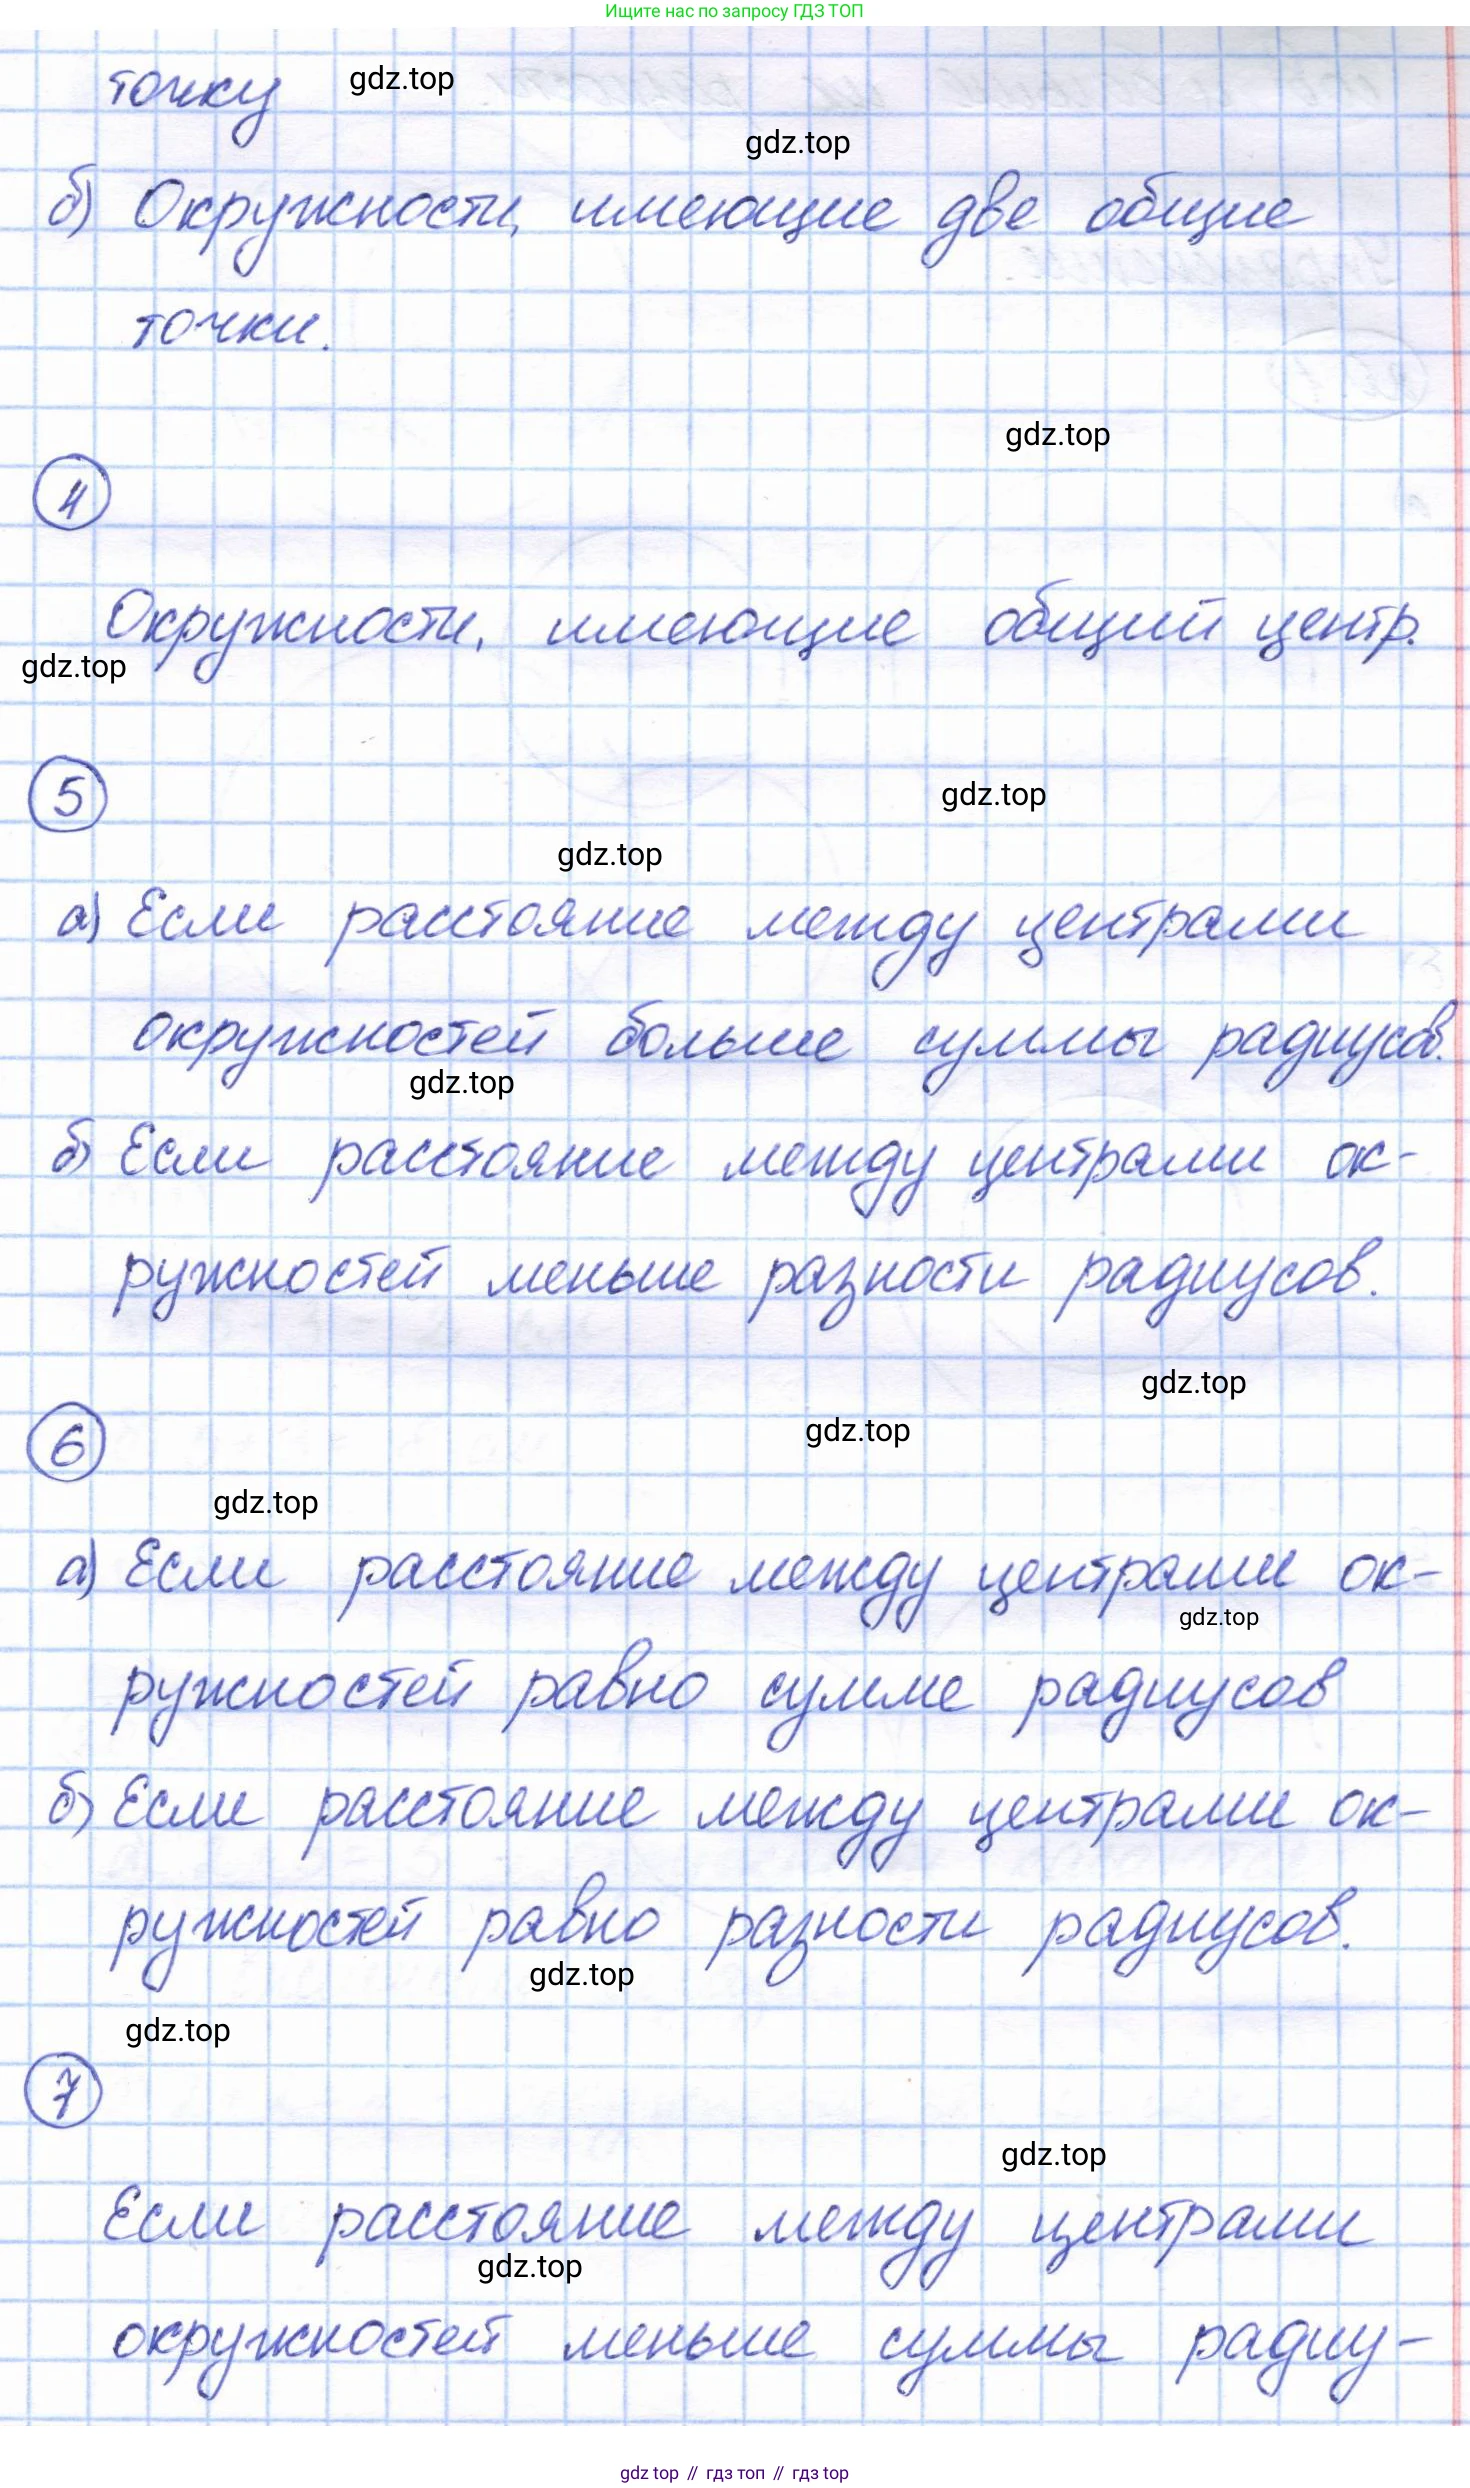 Ищите нас по запросу ГДЗ ТОП
точку gdz.top
gdz.top
б) Окружности, имеющие две общие
точки.
gdz.top
4
Окружности, имеющие общий центр.
gdz.top
5
gdz.top
gdz.top
а) Если расстояние между центрами
окружностей больше суммы радиусов.
gdz.top
б) Если расстояние между центрами ок-
ружностей меньше разности радиусов.
gdz.top
gdz.top
6
gdz.top
а) Если расстояние между центрами ок-
gdz.top
ружностей равно сумме радиусов
б) Если расстояние между центрами ок-
ружностей равно разности радиусов.
gdz.top
gdz.top
7
gdz.top
Если расстояние между центрами
gdz.top
окружностей меньше суммы радиу-
gdz top // гдз топ // гдз top